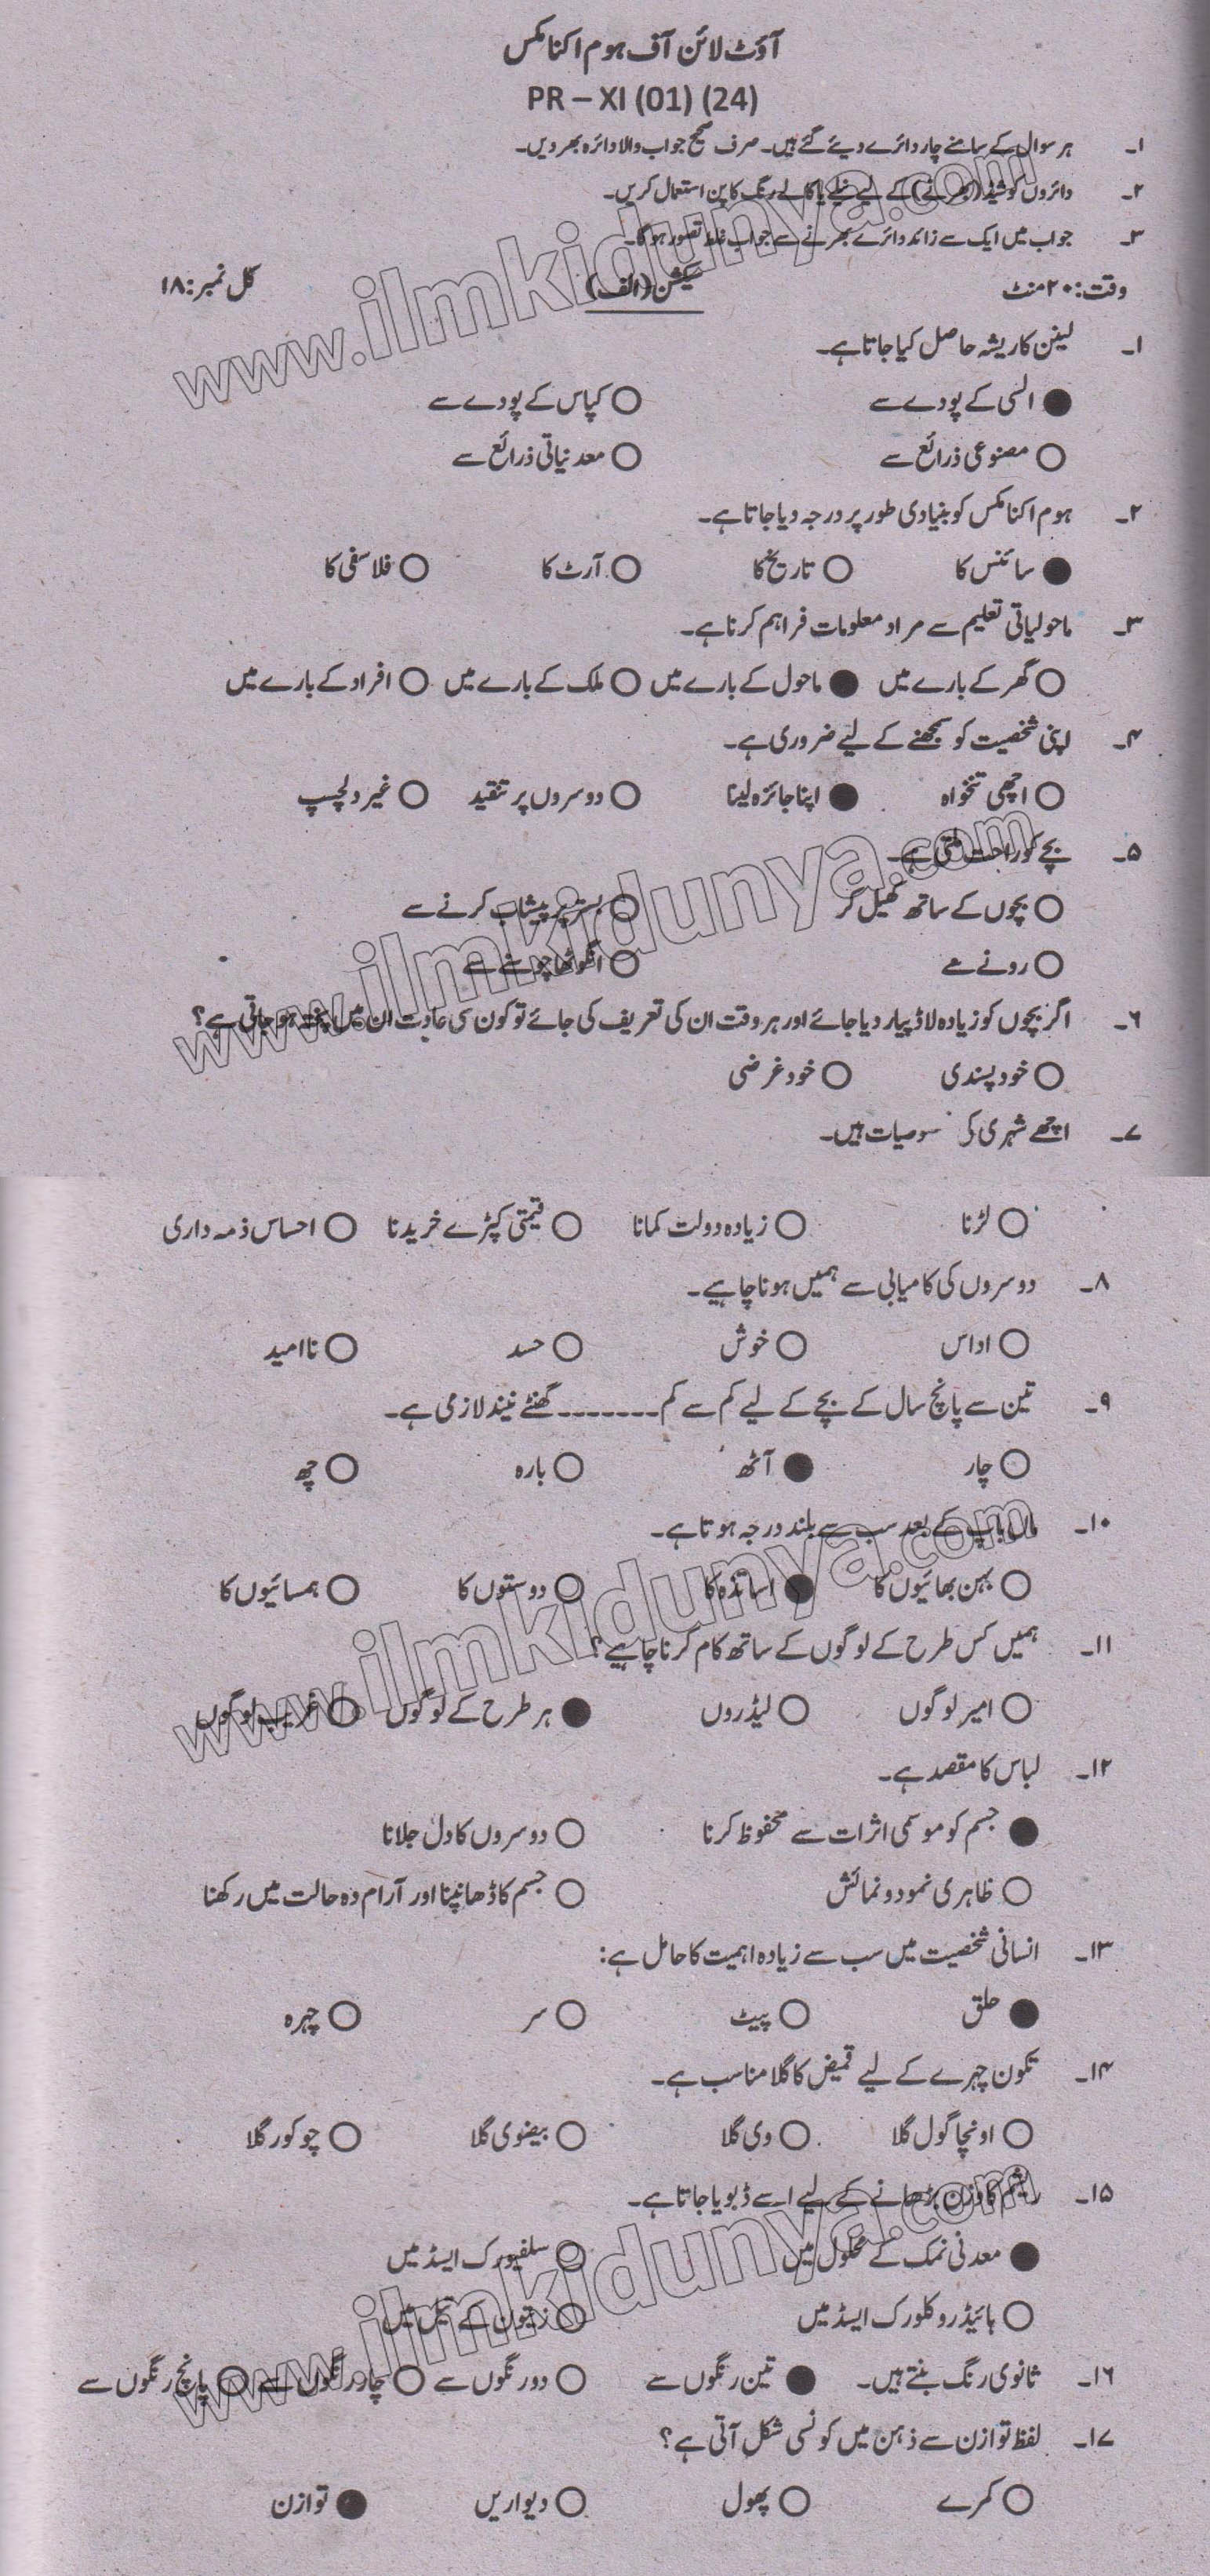 آؤٹ لائن آف ہوم اکنامکس
PR – XI (01) (24)
۱۔ ہر سوال کے سامنے چار دائرے دیئے گئے ہیں۔ صرف صحیح جواب والا دائرہ بھر دیں۔
۲۔ دائروں کو شیڈ (بھرنے) کے لیے نیلے یا کالے رنگ کا پن استعمال کریں۔
۳۔ جواب میں ایک سے زائد دائرے بھرنے سے جواب غلط تصور ہوگا۔
وقت: ۲۰ منٹ سیکشن (الف) کل نمبر: ۱۸
۱۔ لینن کا ریشہ حاصل کیا جاتا ہے۔
● السی کے پودے سے ○ کپاس کے پودے سے
○ مصنوعی ذرائع سے ○ معدنیاتی ذرائع سے
۲۔ ہوم اکنامکس کو بنیادی طور پر درجہ دیا جاتا ہے۔
● سائنس کا ○ تاریخ کا ○ آرٹ کا ○ فلاسفی کا
۳۔ ماحولیاتی تعلیم سے مراد معلومات فراہم کرنا ہے۔
○ گھر کے بارے میں ● ماحول کے بارے میں ○ ملک کے بارے میں ○ افراد کے بارے میں
۴۔ اپنی شخصیت کو سمجھنے کے لیے ضروری ہے۔
○ اچھی تنخواہ ● اپنا جائزہ لینا ○ دوسروں پر تنقید ○ غیر دلچسپ
۵۔ بچے کو راحت ملتی ہے۔
○ بچوں کے ساتھ کھیل کر ○ بستر پر پیشاب کرنے سے
○ رونے سے ○ انگوٹھا چوسنے سے
۶۔ اگر بچوں کو زیادہ لاڈ پیار دیا جائے اور ہر وقت ان کی تعریف کی جائے تو کون سی عادت ان میں پختہ ہو جاتی ہے؟
○ خود پسندی ○ خود غرضی
۷۔ اچھے شہری کی ہیں۔
○ لڑنا ○ زیادہ دولت کمانا ○ قیمتی کپڑے خریدنا ○ احساس ذمہ داری
۸۔ دوسروں کی کامیابی سے ہمیں ہونا چاہیے۔
○ اداس ○ خوش ○ حسد ○ ناامید
۹۔ تین سے پانچ سال کے بچے کے لیے کم سے کم ------- گھنٹے نیند لازمی ہے۔
○ چار ● آٹھ ○ بارہ ○ چھ
۱۰۔ ماں باپ کے بعد سب سے بلند درجہ ہوتا ہے۔
○ بہن بھائیوں کا ● اساتذہ کا ○ دوستوں کا ○ ہمسائیوں کا
۱۱۔ ہمیں کس طرح کے لوگوں کے ساتھ کام کرنا چاہیے؟
○ امیر لوگوں ○ لیڈروں ● ہر طرح کے لوگوں ○ غریب لوگوں
۱۲۔ لباس کا مقصد ہے۔
● جسم کو موسمی اثرات سے محفوظ کرنا ○ دوسروں کا دل جلانا
○ ظاہری نمود و نمائش ○ جسم کا ڈھانپنا اور آرام دہ حالت میں رکھنا
۱۳۔ انسانی شخصیت میں سب سے زیادہ اہمیت کا حامل ہے:
● حلق ○ پیٹ ○ سر ○ چہرہ
۱۴۔ تکون چہرے کے لیے قمیض کا گلا مناسب ہے۔
○ اونچا گول گلا ○ وی گلا ○ بیضوی گلا ○ چوکور گلا
۱۵۔ ریشم کا وزن بڑھانے کے لیے اسے ڈبویا جاتا ہے۔
● معدنی نمک کے محلول میں ○ سلفیورک ایسڈ میں
○ ہائیڈروکلورک ایسڈ میں ○ زیتون کے تیل میں
۱۶۔ ثانوی رنگ بنتے ہیں۔ ● تین رنگوں سے ○ دو رنگوں سے ○ چار رنگوں سے ○ پانچ رنگوں سے
۱۷۔ لفظ توازن سے ذہن میں کونسی شکل آتی ہے؟
○ کمرے ○ پھول ○ دیواریں ● توازن
www.ilmkidunya.com
www.ilmkidunya.com
www.ilmkidunya.com
www.ilmkidunya.com